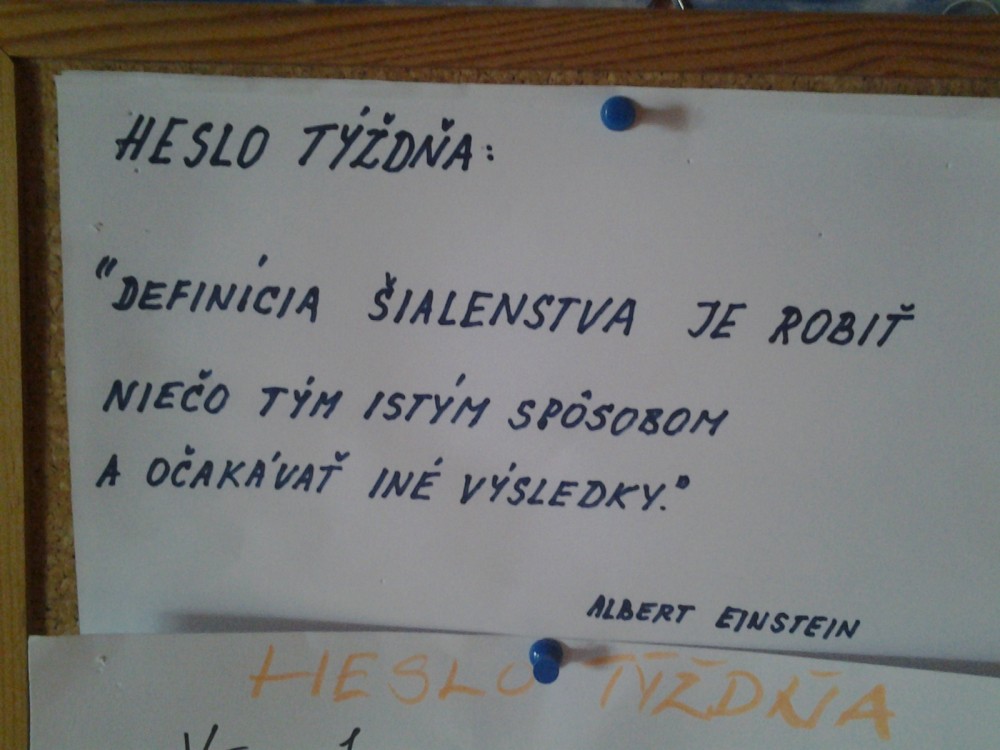 HESLO TÝŽDŇA:
"DEFINÍCIA ŠIALENSTVA JE ROBIŤ
NIEČO TÝM ISTÝM SPÔSOBOM
A OČAKÁVAŤ INÉ VÝSLEDKY."
ALBERT EINSTEIN
HESLO TÝŽDŇA